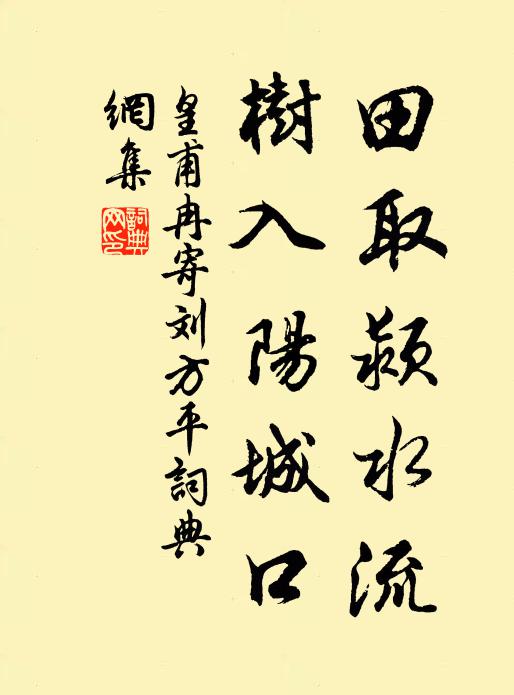 田取潁水流
樹入陽城口
皇甫冉寄刘方平詞典
網集
詞典
网印